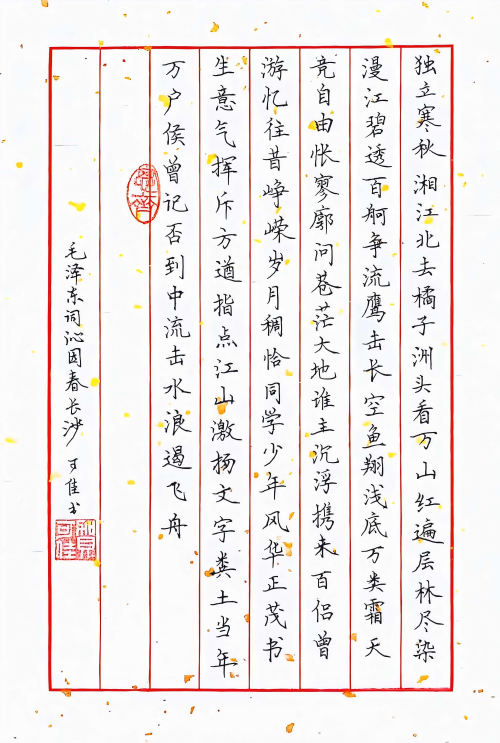 独立寒秋湘江北去橘子洲头看万山红遍层林尽染
漫江碧透百舸争流鹰击长空鱼翔浅底万类霜天
竞自由怅寥廓问苍茫大地谁主沉浮携来百侣曾
游忆往昔峥嵘岁月稠恰同学少年风华正茂书
生意气挥斥方遒指点江山激扬文字粪土当年
万户侯曾记否到中流击水浪遏飞舟
毛泽东词沁园春长沙
可佳书